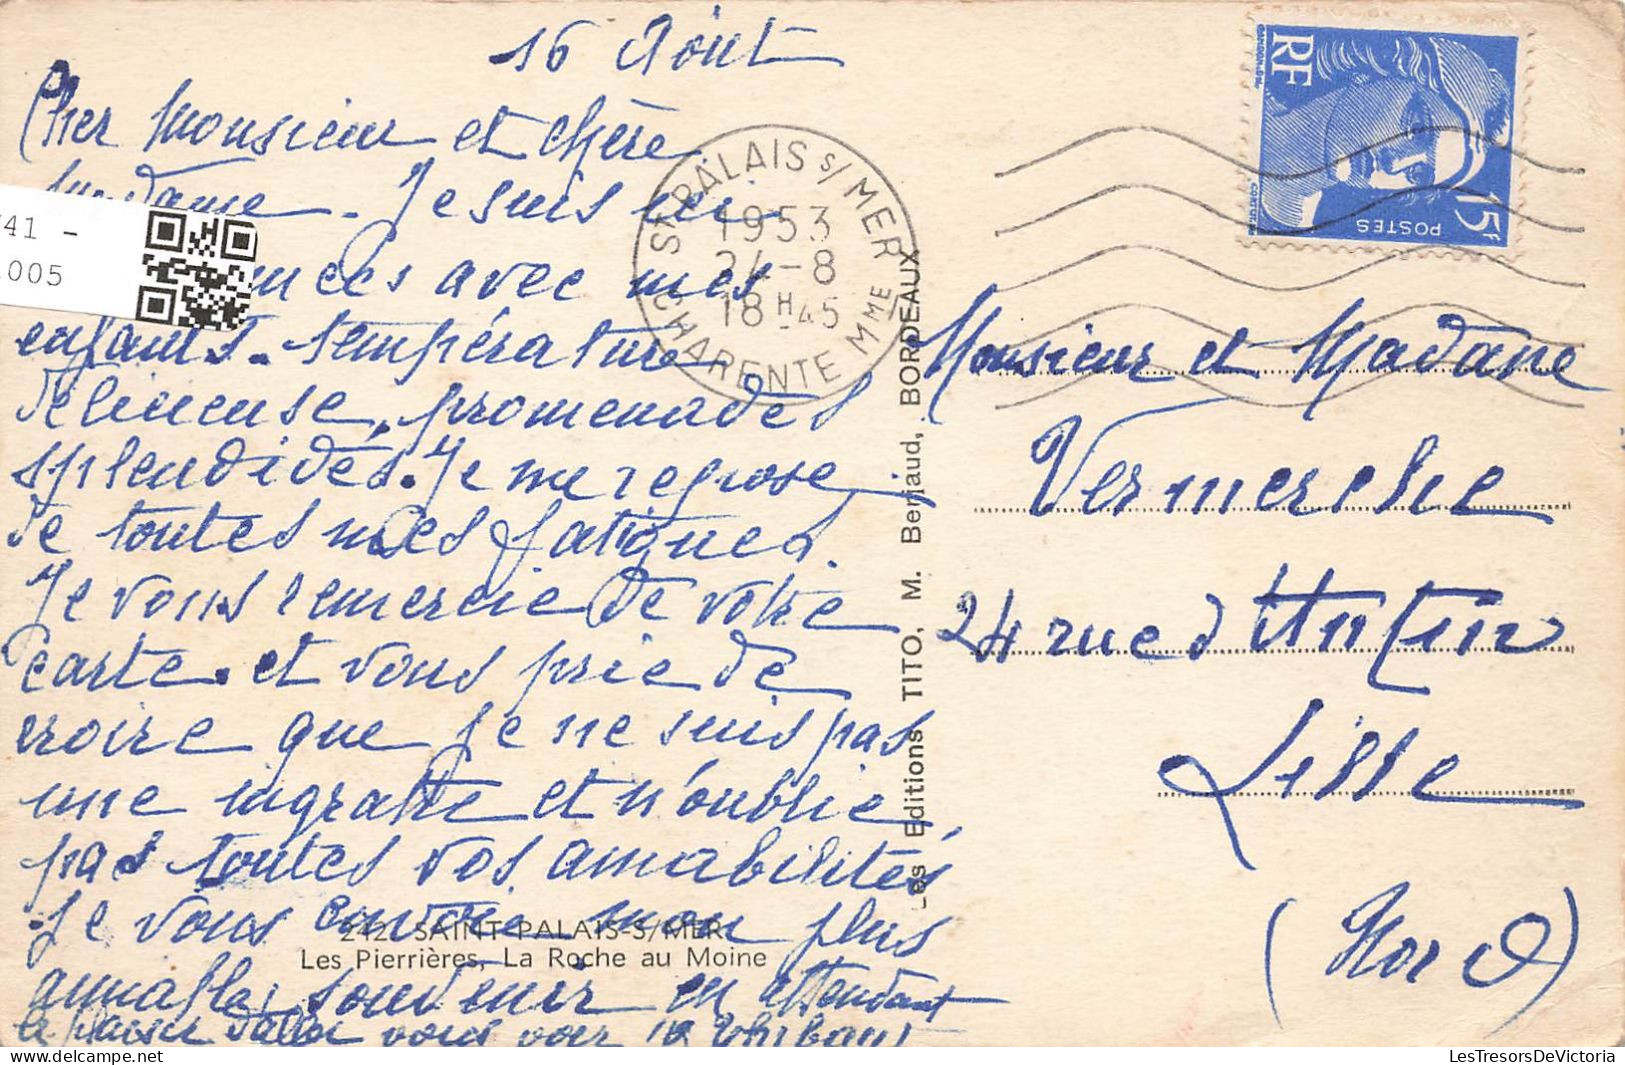 16 Août
Cher Monsieur et chère
Madame. Je suis ici
avec mes
enfants. température
délicieuse, promenades
splendides. Je me repose
de toutes mes fatigues.
Je vous remercie de votre
carte. et vous prie de
croire que je ne suis pas
une ingratte et n'oublie
pas toutes vos amabilités
Je vous envoie mon plus
souvenir en attendant
le plaisir d'aller vous voir
41 -
005
ST PALAIS S/ MER
1953
24-8
18H45
CHARENTE MME
RF
15F
POSTES
Les Editions TITO, M. Berjaud, BORDEAUX
Monsieur et Madame
Vermerche
24 rue d'Antin
Lille
(Nord)
242 SAINT-PALAIS-S/MER
Les Pierrières, La Roche au Moine
LesTresorsDeVictoria